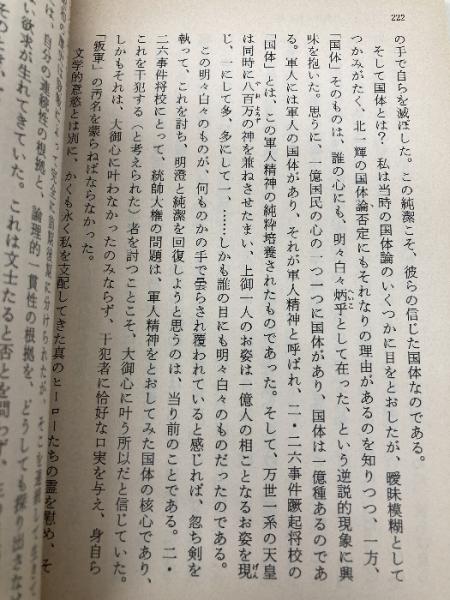 222
の手で自らを滅ぼした。この純潔こそ、彼らの信じた国体なのである。
そして国体とは？ 私は当時の国体論のいくつかに目をとおしたが、曖昧模糊として
つかみがたく、北一輝の国体論否定にもそれなりの理由があるのを知りつつ、一方、
「国体」そのものは、誰の心にも、明々白々炳乎として在った、という逆説的現象に興
味を抱いた。思うに、一億国民の心の一つ一つに国体があり、国体は一億種あるのであ
る。軍人には軍人の国体があり、それが軍人精神と呼ばれ、二・二六事件蹶起将校の
「国体」とは、この軍人精神の純粋培養されたものであった。そして、万世一系の天皇
は同時に八百万の神を兼ねさせたまい、上御一人のお姿は一億人の相ことなるお姿を現
じ、一にして多、多にして一、……しかも誰の目にも明々白々のものだったのである。
この明々白々のものが、何ものかの手で曇らされ覆われていると感じれば、忽ち剣を
執って、これを討ち、明澄と純潔を回復しようと思うのは、当り前のことである。二・
二六事件将校にとって、統帥大権の問題は、軍人精神をとおしてみた国体の核心であり、
これを干犯する（と考えられた）者を討つことこそ、大御心に叶う所以だと信じていた。
しかもそれは、大御心に叶わなかったのみならず、干犯者に恰好な口実を与え、身自ら
「叛軍」の汚名を蒙らねばならなかった。
文学的意慾とは別に、かくも永く私を支配してきた真のヒーローたちの霊を慰め、そ
って完全に前期後期に分けられたが、そこを連
は、自分の連続性の根拠と、論理的一貫性の根拠を、どうしても探り出さな
い欲求が生れてきていた。これは文士たると否とを問わず、